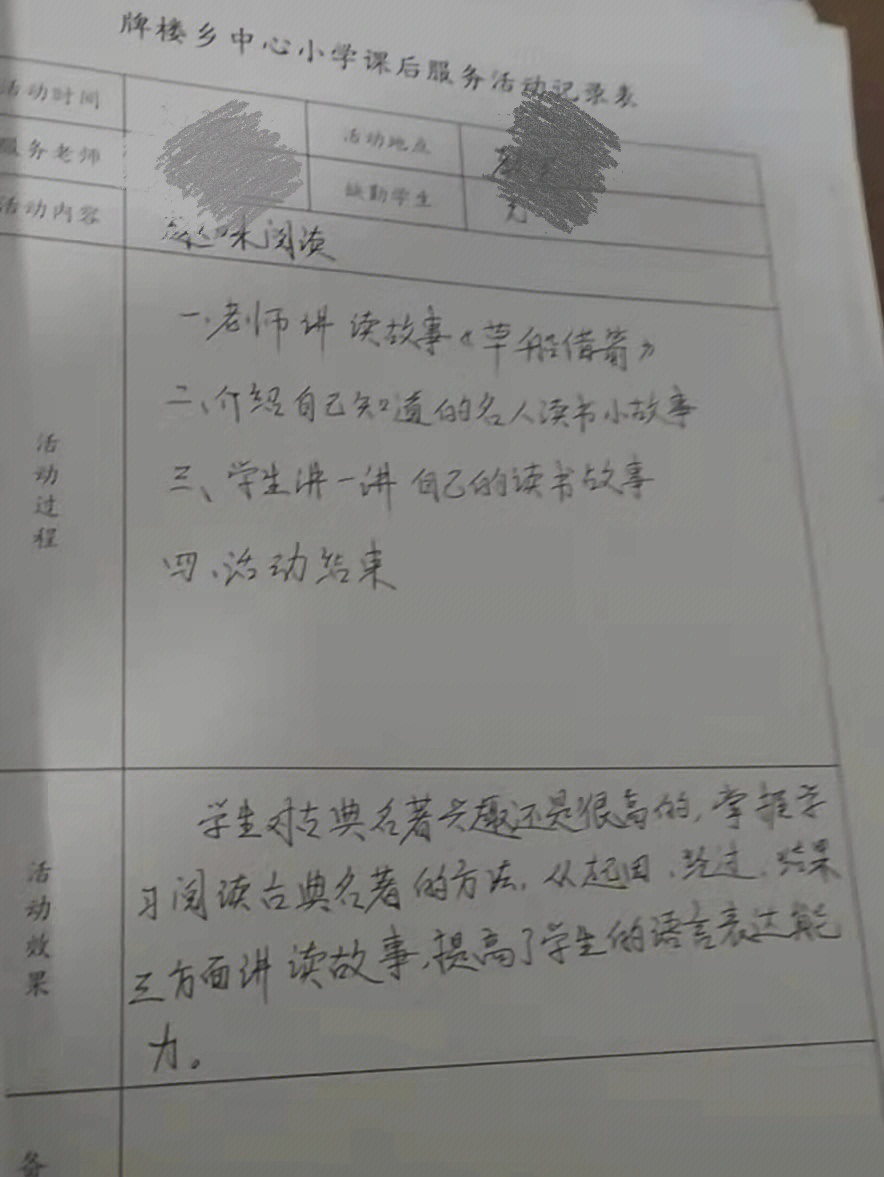 牌楼乡中心小学课后服务活动记录表
活动时间
活动地点
服务老师
缺勤学生
活动内容
趣味阅读
活动过程
一.老师讲读故事《草船借箭》
二、介绍自己知道的名人读书小故事
三、学生讲一讲自己的读书故事
四、活动结束
活动效果
学生对古典名著兴趣还是很高的,掌握学
习阅读古典名著的方法,从起因、经过、结果
三方面讲读故事,提高了学生的语言表达能
力。
备